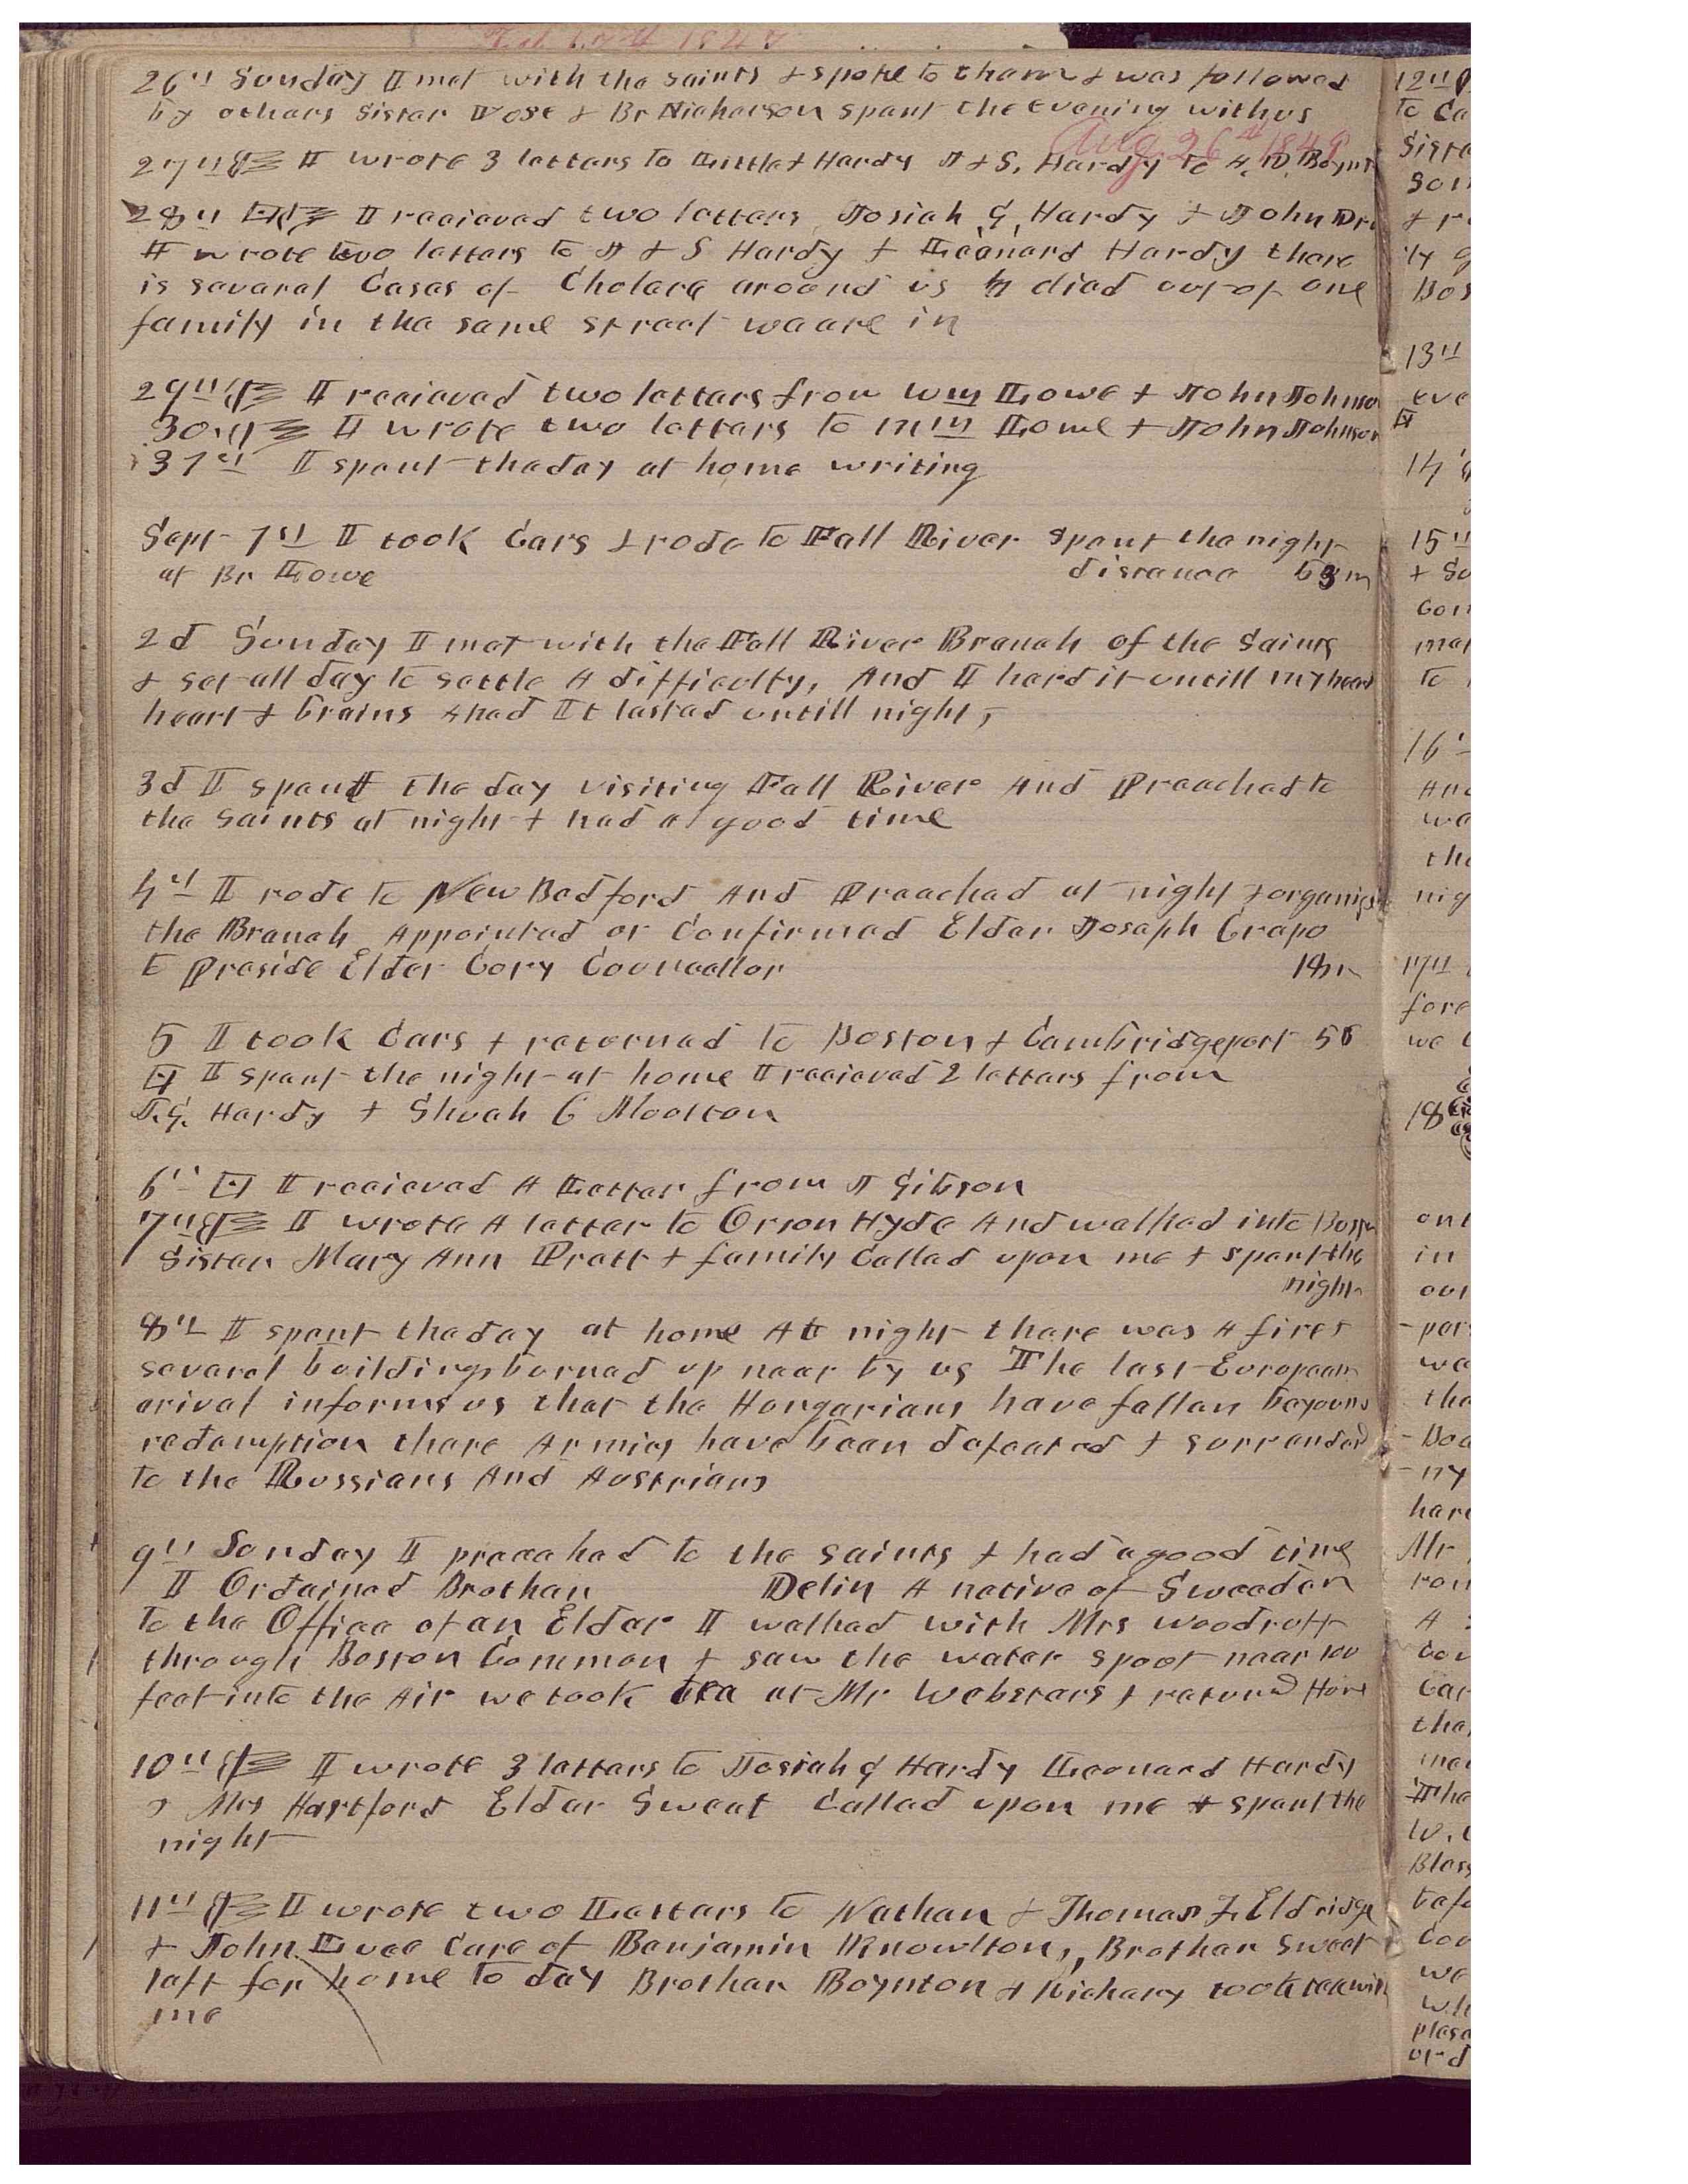 26th Sunday I met with the Saints & spoke to them & was followed
by others Sister Vose & Br Nickerson spent the Evening with us
Aug 26th 1849
27th I wrote 3 letters to Little & Hardy J & S. Hardy to A. D. Boynt
28th I received two letters Josiah G, Hardy & John Dr
I wrote two letters to J & S Hardy & Leonard Hardy there
is several Cases of Cholera around us 4 died out of one
family in the same street we are in
29th I received two letters from Wm Lowe & John Johnso
30th I wrote two letters to Wm Lowe & John Johnson
31st I spent the day at home writing
Sept 1st I took Cars & rode to Fall River spent the night
at Br Lowe distance 53 m
2d Sunday I met with the Fall River Branch of the Saints
& set all day to settle A difficulty, And I herd it untill my head
heart & brains Aked It lasted untill night,
3d I spent the day visiting Fall River And Preached to
the Saints at night & had a good time
4th I rode to New Bedford And Preached at night & organised
the Branch Appointed or Confirmed Elder Joseph Grapo
to Preside Elder Cory Councellor 18 m
5 I took Cars & returned to Boston & Cambridgeport 55
I spent the night at home I received 2 letters from
J.G. Hardy & Shuah C Moolton
6th I received A Letter from J Gibson
7th I wrote A letter to Orson Hyde And walked into Boston
Sister Mary Ann Pratt & family Called upon me & spent the
night
8th I spent the day at home At night there was A fire &
several buildings burned up near by us The last European
arival informs us that the Hungarians have fallen beyound
redemption there Armies have been defeated & surrenderd
to the Russians And Austrians
9th Sunday I preached to the Saints & had a good time
I Ordained Brother Delin A native of Sweeden
to the Office of an Elder I walked with Mrs Woodruff
through Boston Common & saw the water spout near 100
feet into the Air we took tea at Mr Websters & returnd Home
10th I wrote 3 letters to Josiah G Hardy Leonard Hardy
& Mrs Hartford Elder Sweat Called upon me & spent the
night
11th I wrote two Letters to Nathan & Thomas F. Eldridge
& John Luce Care of Benjamin Knowlton,, Brother Sweat
left for home to day Brother Boynton & took tea with
me